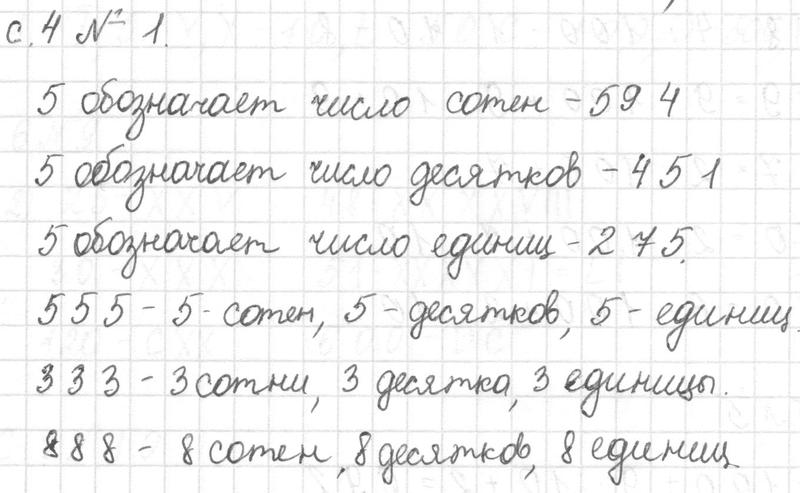 с. 4 № 1.
5 обозначает число сотен – 594
5 обозначает число десятков – 451
5 обозначает число единиц – 275.
555 – 5 - сотен, 5 – десятков, 5 – единиц.
333 – 3 сотни, 3 десятка, 3 единицы.
888 – 8 сотен, 8 десятков, 8 единиц